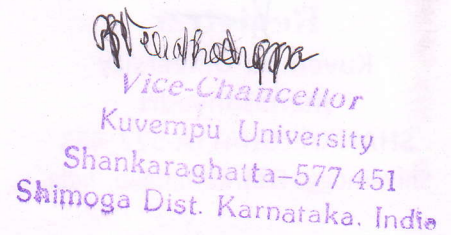 Vice-Chancellor
Kuvempu University
Shankaraghatta–577 451
Shimoga Dist. Karnataka. India